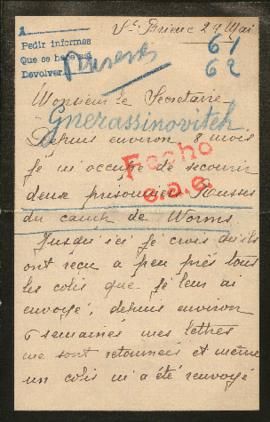 St Brieuc 27 Mai
A
Pedir informes
Que se haga
Devolver
61
62
Monsieur le Secretaire
Gnerassinovitch
Depuis environ 8 mois
je m'occupe de secourir
deux prisonniers Russes
du camp de Worms
Fecho
Jusqu'ici je crois qu'ils
ont reçu a peu près tous
les colis que je leur ai
envoyé, depuis environ
6 semaines mes lettres
me sont retournées et même
un colis m'a été renvoyé